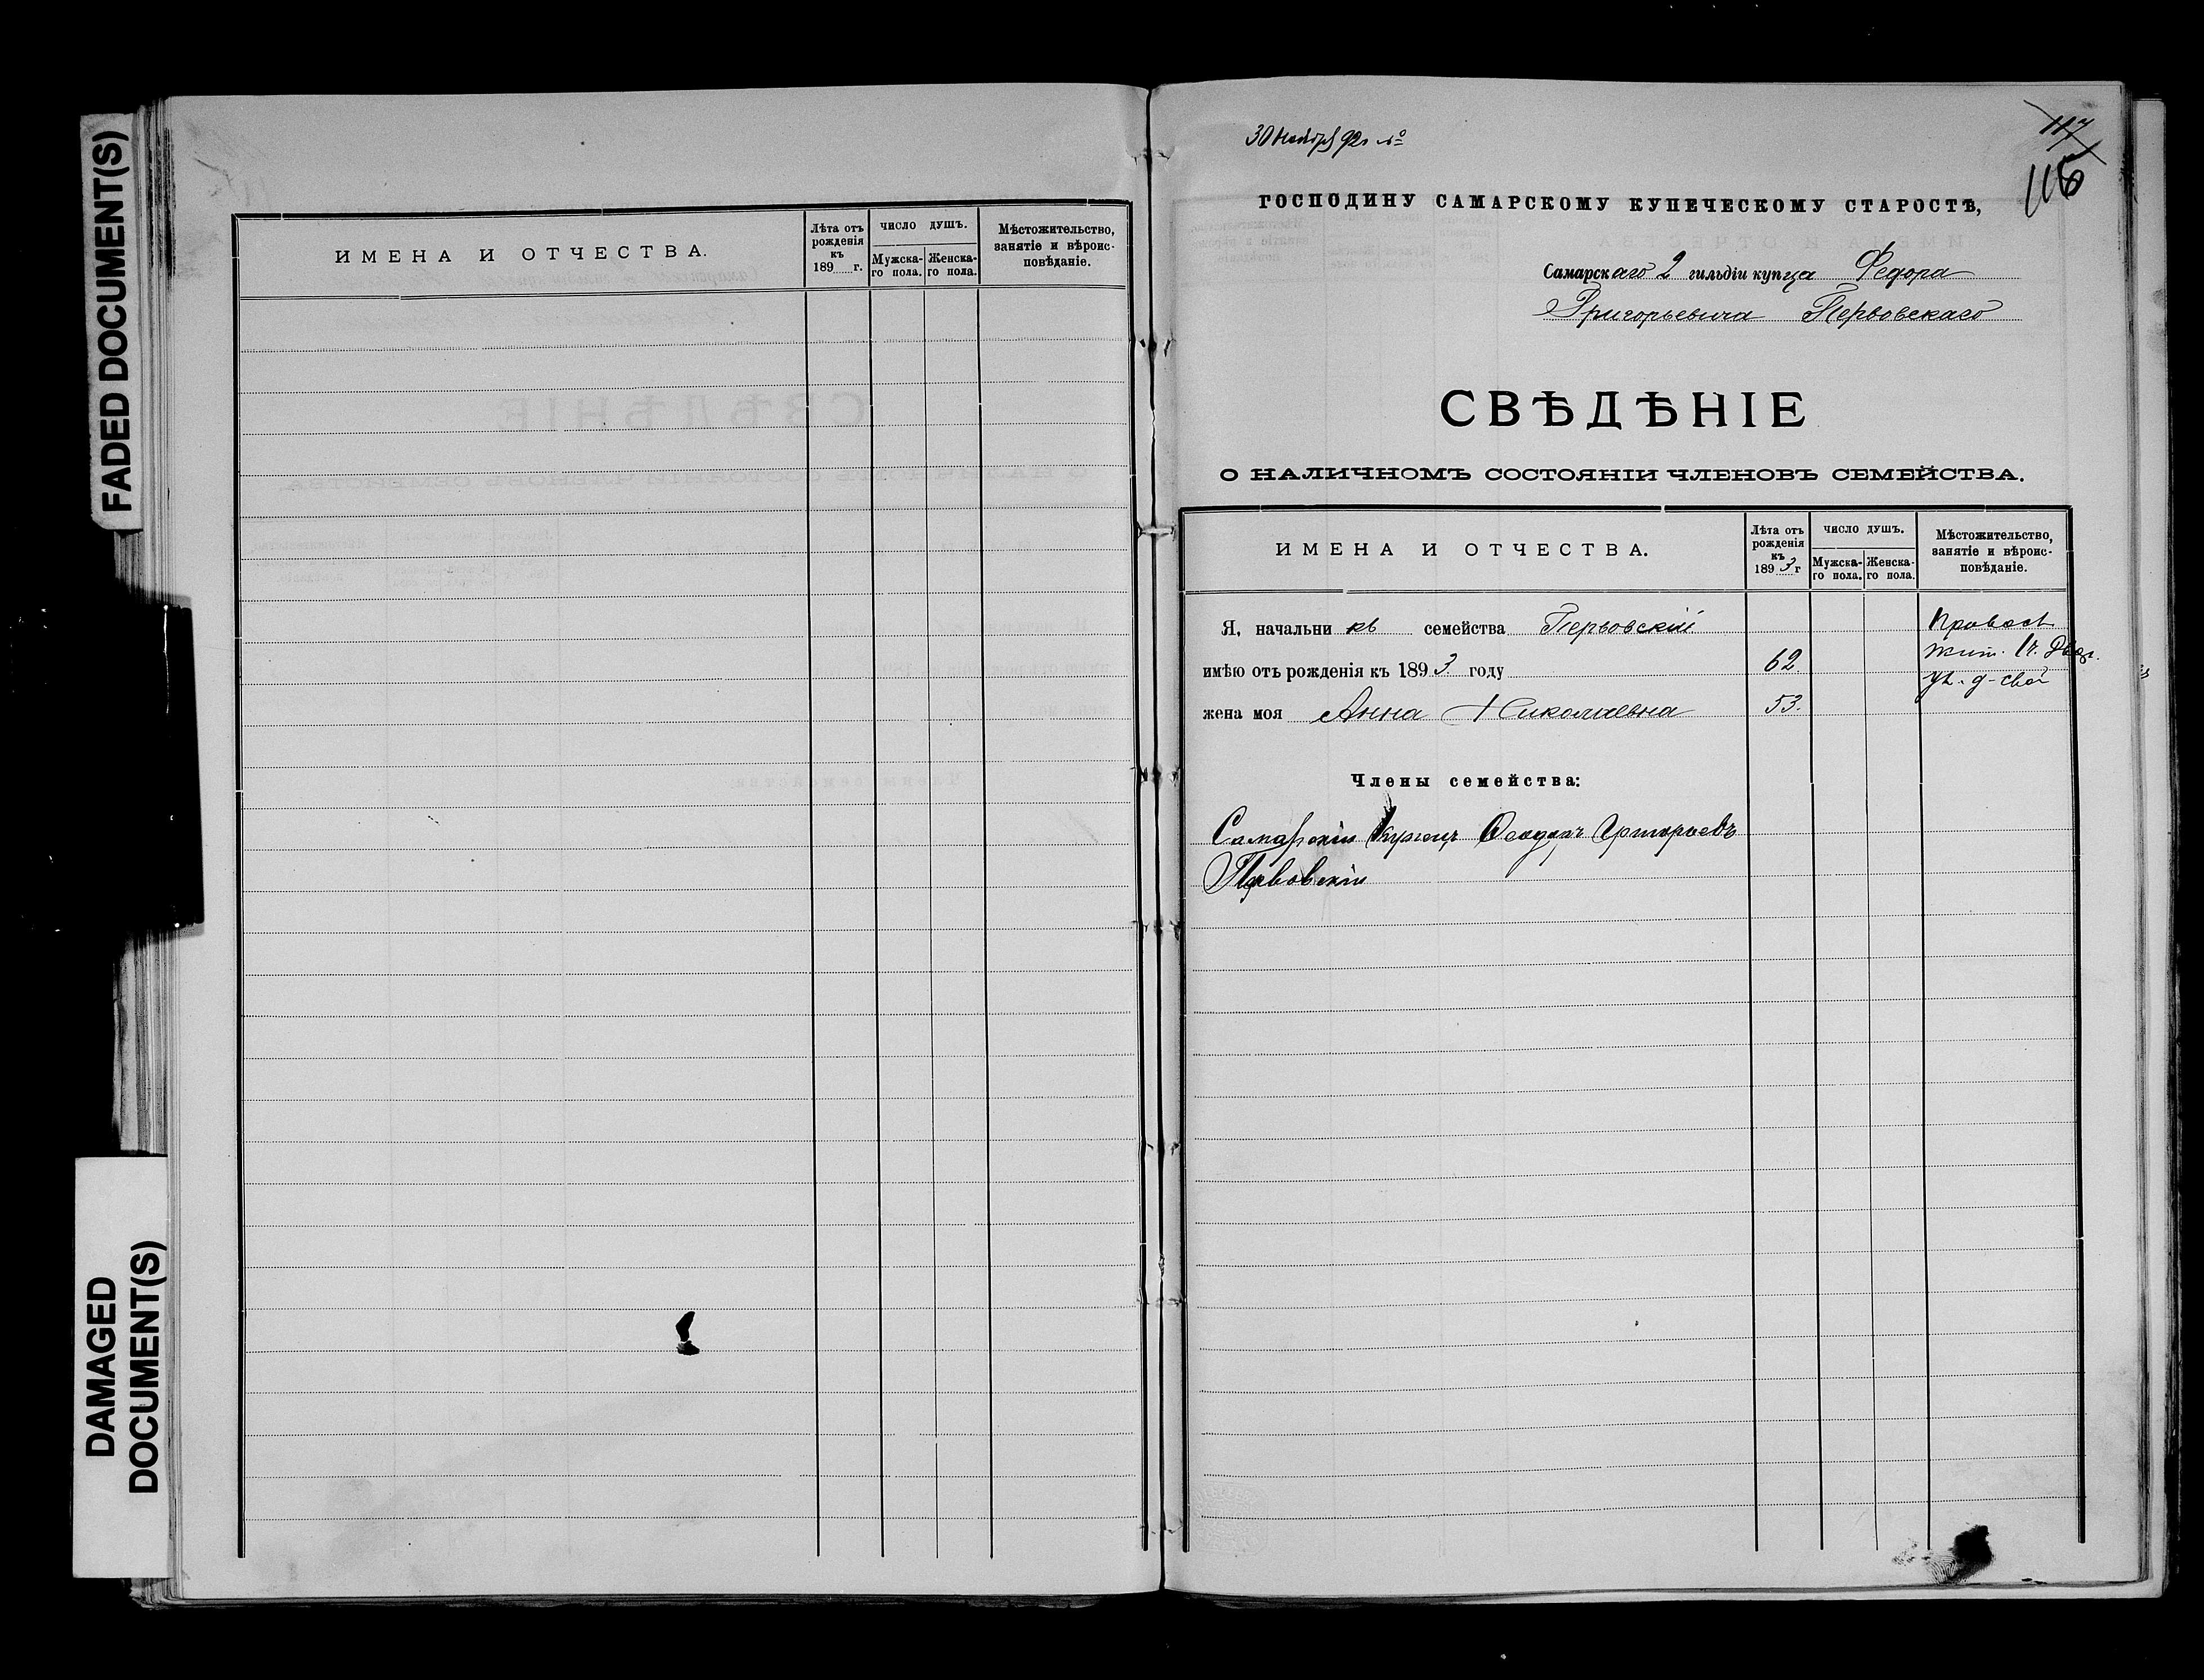 FADED DOCUMENT(S)
DAMAGED
DOCUMENT(S)
ИМЕНА И ОТЧЕСТВА.
Лѣта отъ
рожденія
къ
189 г.
ЧИСЛО ДУШЪ.
Мужска-
го пола.
Женска-
го пола.
Мѣстожительство,
занятіе и вѣроис-
повѣданіе.
30 Ноября 92 г №
117
116
ГОСПОДИНУ САМАРСКОМУ КУПЕЧЕСКОМУ СТАРОСТѢ,
Самарскаго 2 гильдіи купца Федора
Григорьевича Первовскаго
СВѢДѢНІЕ
О НАЛИЧНОМЪ СОСТОЯНІИ ЧЛЕНОВЪ СЕМЕЙСТВА.
ИМЕНА И ОТЧЕСТВА.
Лѣта отъ
рожденія
къ
1893 г
ЧИСЛО ДУШЪ.
Мужска-
го пола.
Женска-
го пола.
Мѣстожительство,
занятіе и вѣроис-
повѣданіе.
Я, начальникъ семейства Первовскій
имѣю отъ рожденія къ 1893 году 62
жена моя Анна Николаевна 53.
Правосл
жит.
ул. д-свой
Члены семейства:
Самарскій Купецъ Феодоръ Григорьевъ
Первовскій